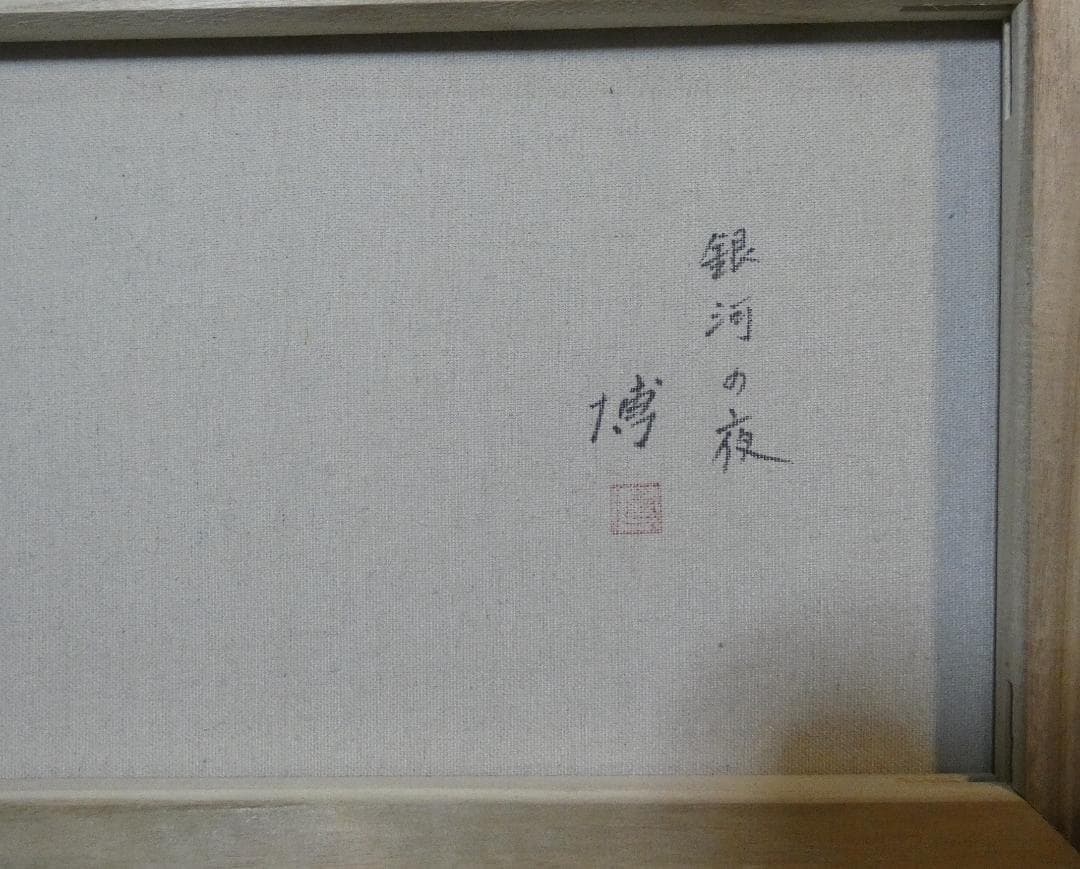 銀河の夜
博